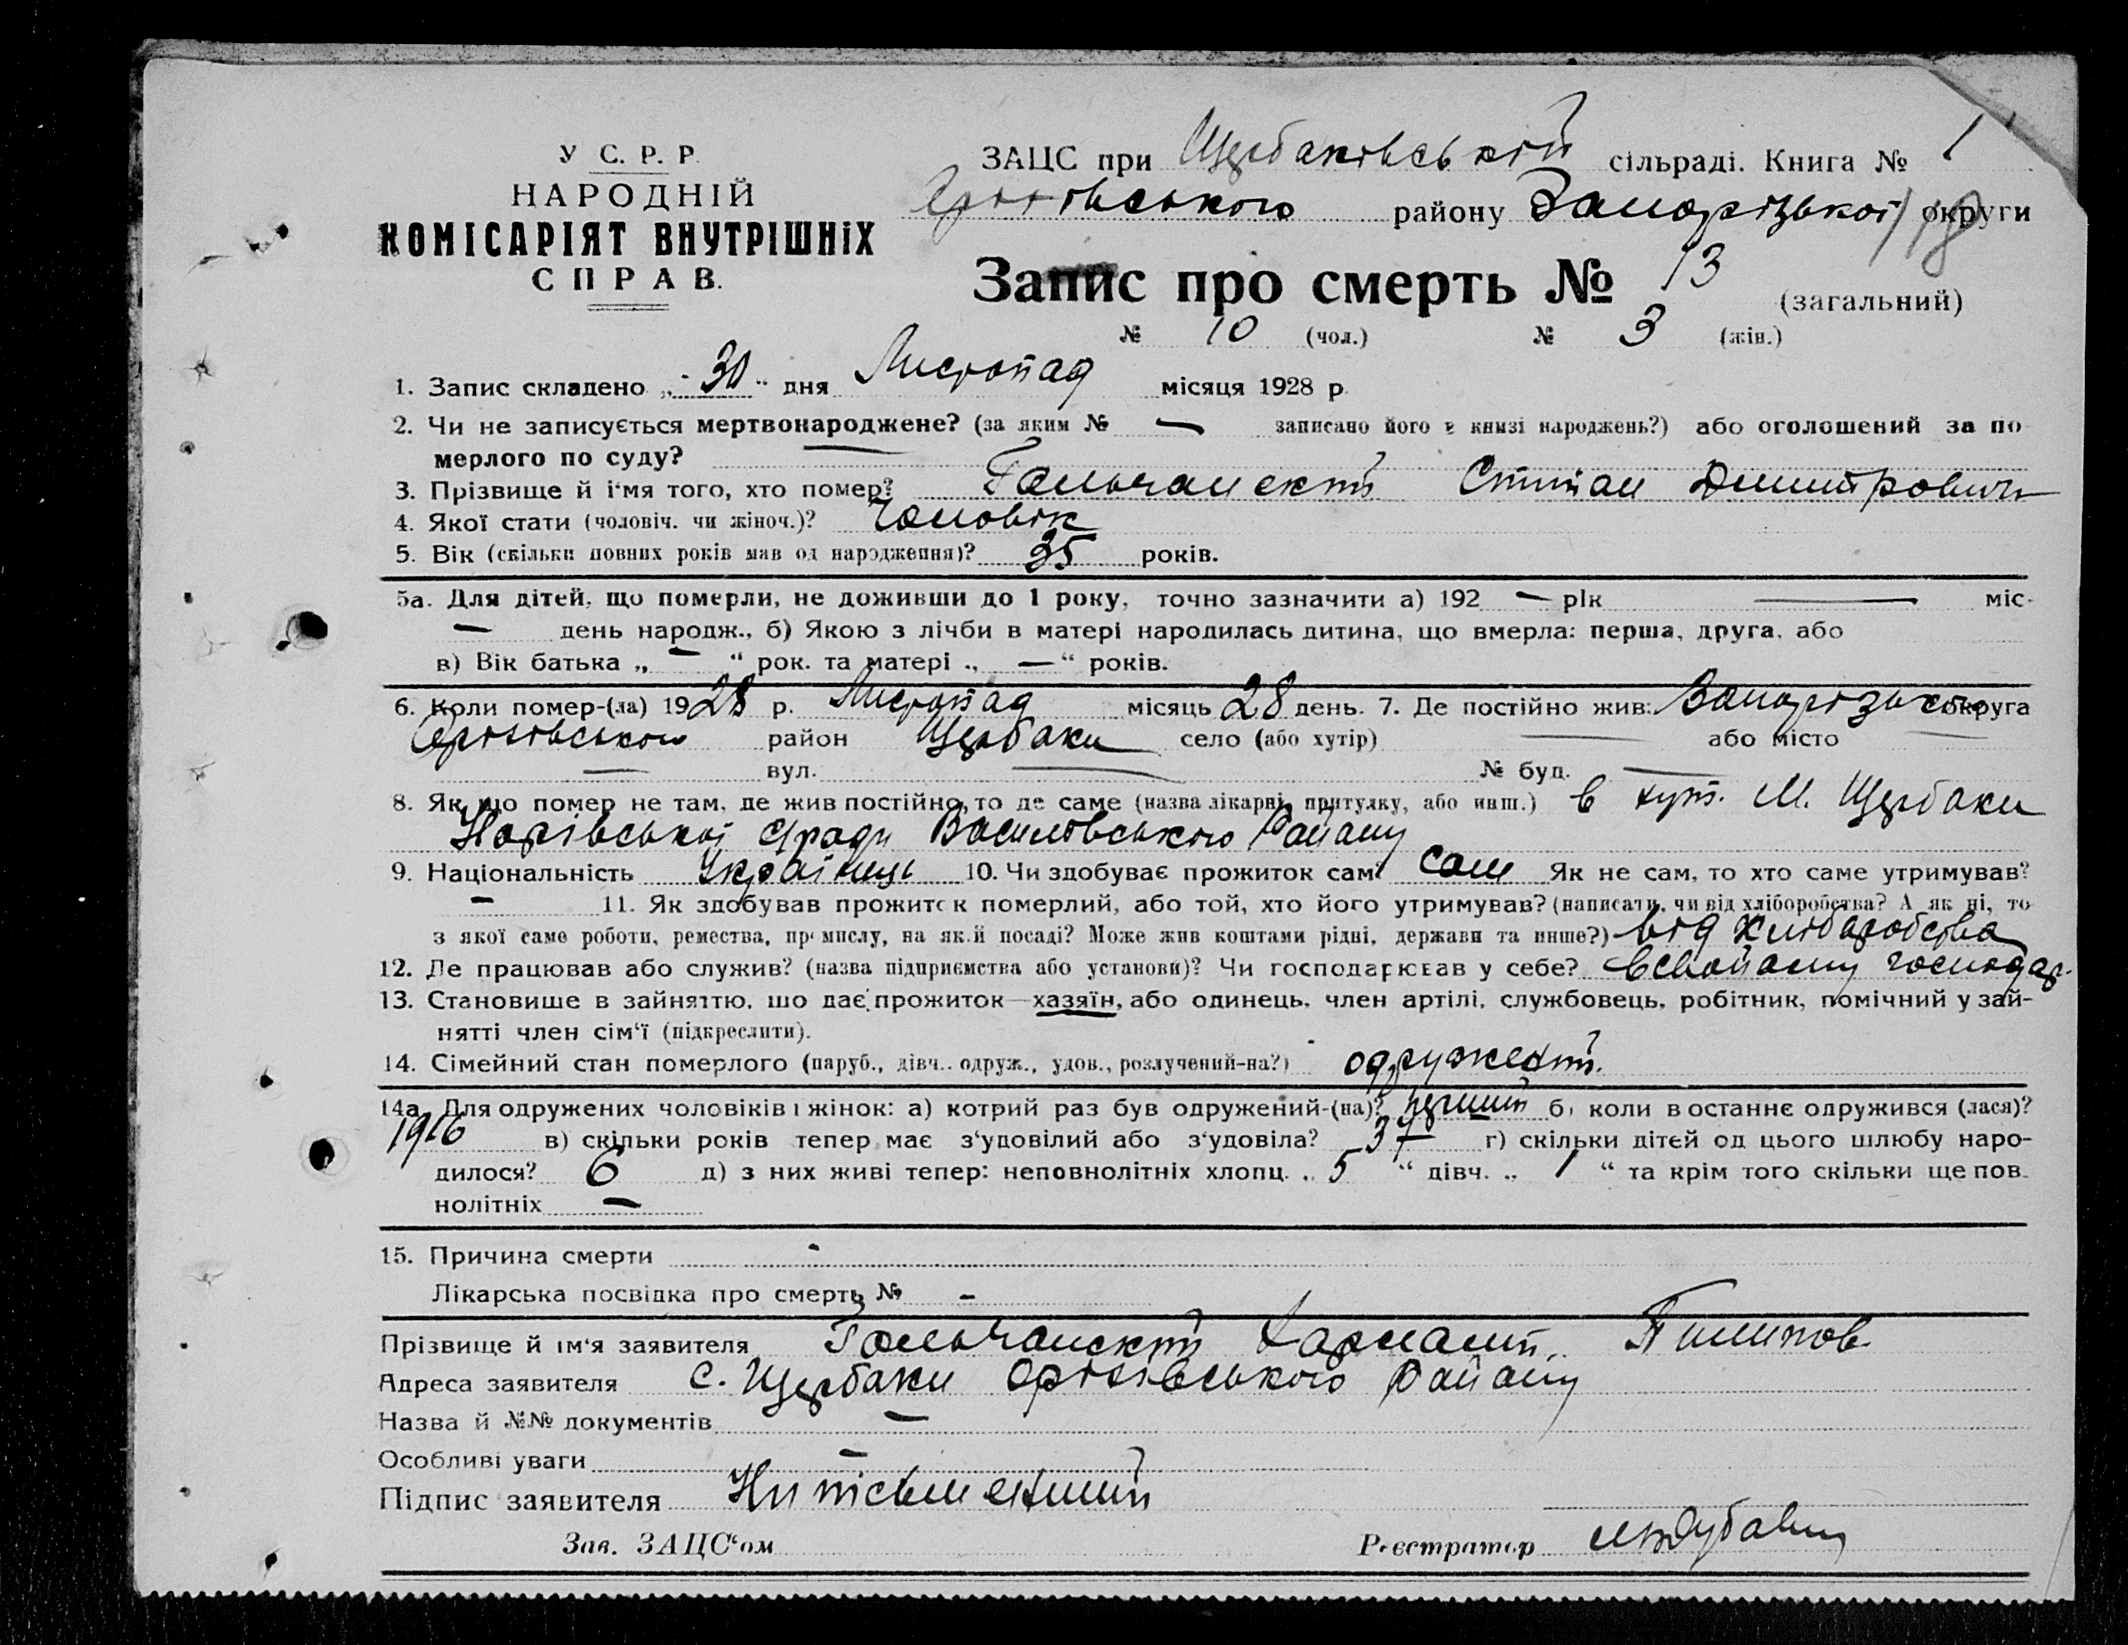 У С. Р. Р.
НАРОДНІЙ
КОМІСАРІЯТ ВНУТРІШНІХ
СПРАВ.
ЗАЦС при Щербаківській сільраді. Книга № 1
Оріхівського району Запорізької округи
18
Запис про смерть № 13 (загальний)
№ 10 (чол.) № 3 (жін.)
1. Запис складено „30“ дня Листопад місяця 1928 р.
2. Чи не записується мертвонароджене? (за яким № — записано його в книзі народжень?) або оголошений за по-
мерлого по суду? —
3. Прізвище й і'мя того, хто помер? Гольчанскій Степан Дмитрович
4. Якої стати (чоловіч. чи жіноч.)? Чоловік
5. Вік (скільки повних років мав од народження)? 35 років.
5а. Для дітей, що померли, не доживши до 1 року, точно зазначити а) 192 — рік — міс-
— день народж., б) Якою з лічби в матері народилась дитина, що вмерла: перша, друга, або
в) Вік батька „ — “ рок. та матері „ — “ років.
6. Коли помер-(ла) 1928 р. Листопад місяць 28 день. 7. Де постійно жив: Запорізько округа
Оріхівського район Щербаки село (або хутір) — або місто —
— вул. — № буд. —
8. Якщо помер не там, де жив постійно, то де саме (назва лікарні, притулку, або инш.) в хут. М. Щербаки
с/ради Василівського Району
9. Національність Українець 10. Чи здобуває прожиток сам? сам Як не сам, то хто саме утримував?
— 11. Як здобував прожиток померлий, або той, хто його утримував? (написати, чи від хліборобства? А як ні, то
з якої саме роботи, ремества, промислу, на якій посаді? Може жив коштами рідні, держави та инше?) від хліборобства
12. Де працював або служив? (назва підприємства або установи)? Чи господарював у себе? в свойому господар.
13. Становище в зайняттю, що дає прожиток — хазяїн, або одинець, член артілі, службовець, робітник, помічний у зай-
нятті член сім'ї (підкреслити).
14. Сімейний стан померлого (паруб., дівч., одруж., удов., розлучений-на?) одружений.
14а. Для одружених чоловіків і жінок: а) котрий раз був одружений-(на)? перший б) коли в останнє одружився (лася)?
1916 в) скільки років тепер має з'удовілий або з'удовіла? 37 г) скільки дітей од цього шлюбу наро-
дилося? 6 д) з них живі тепер: неповнолітніх хлопц. „ 5 “ дівч. „ 1 “ та крім того скільки ще пов-
нолітніх —
15. Причина смерти -
Лікарська посвідка про смерть № -
Прізвище й ім'я заявителя Гольчанскій Пилипов.
Адреса заявителя с. Щербаки Оріхівського Району
Назва й №№ документів —
Особливі уваги —
Підпис заявителя Ниписьменний
Зав. ЗАЦС'ом Реєстратор